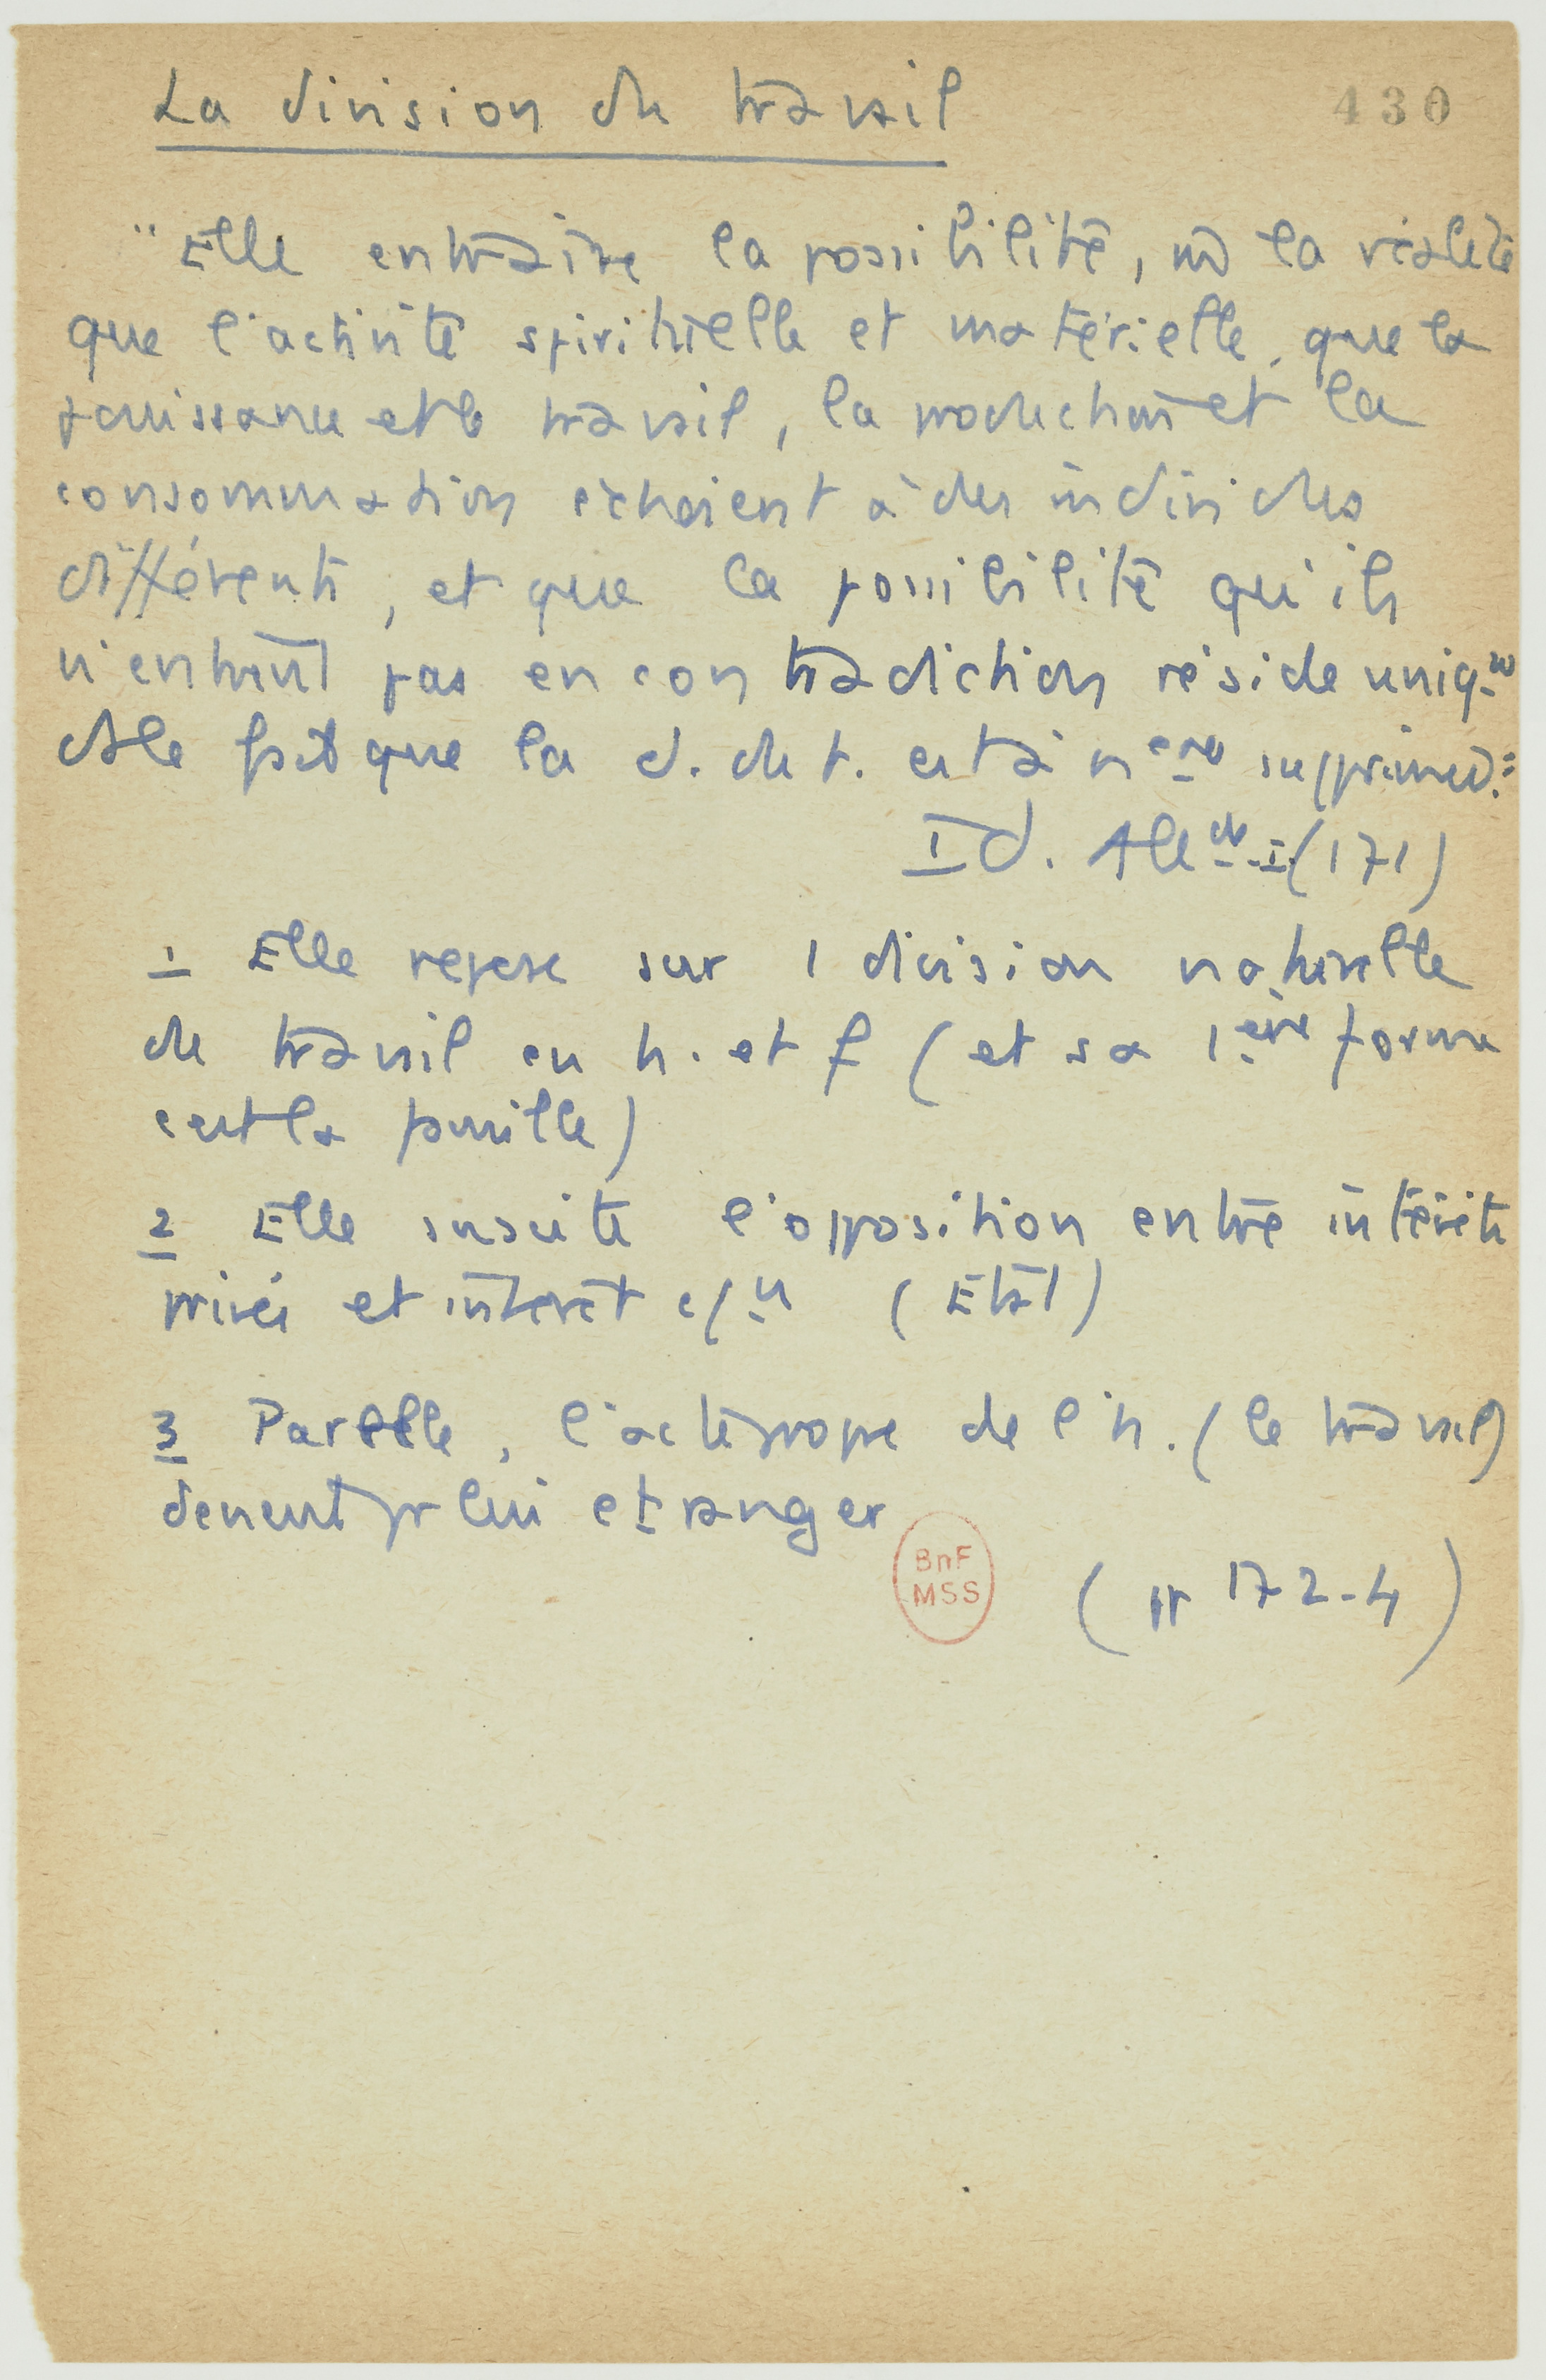 La division du travail
430
"Elle entraîne la possibilité, m̂ la réalité
que l'activité spirituelle et matérielle, que la
jouissance et le travail, la production et la
consommation échoient à des individus
différents, et que la possibilité qu'ils
n'entrent pas en contradiction réside uniqnt
ds le fait que la d. du t. est à nveau supprimée."
Id. Allde I (171)
1 Elle repose sur 1 division naturelle
du travail en h. et f (et sa 1ère forme
c'est la famille)
2 Elle suscite l'opposition entre intérêts
privés et intérêt c/n (Etat)
3 Par elle, l'acte propre de l'h. (le travail)
devient pr lui etranger
BnF
MSS
(pp 172-4)